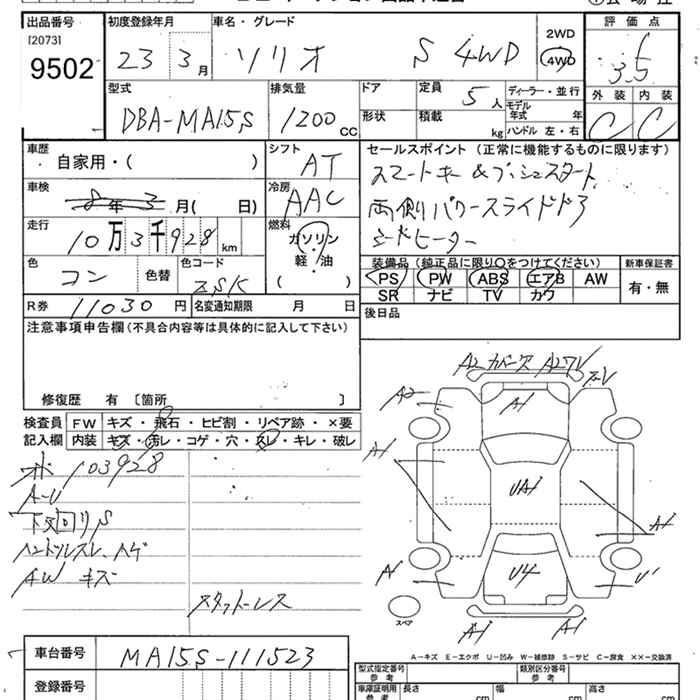 出品番号 初度登録年月 車名・グレード 評価点
[2073]
9502
23 3月 ソリオ S 4WD 2WD 4WD 3.5
外装 内装
C C
型式 排気量 ドア 定員 ディーラー・並行
DBA-MA15S 1200CC 5人 モデル年式 年
形状 積載 kg ハンドル 左・右
車歴 シフト セールスポイント(正常に機能するものに限ります)
自家用・( ) AT スマートキー&プッシュスタート
車検 年 3月( 日) 冷房 AAC 両側パワースライドドア
走行 10万3千928km 燃料 ガソリン・軽・油( ) シードヒーター
色 色替 色コード 装備品(純正品に限り○をつけてください) 新車保証書
コン ZSK PS PW ABS エアB AW 有・無
SR ナビ TV カワ
R券 11030円 名変通知期限 月 日
後日品
注意事項申告欄(不具合内容等は具体的に記入して下さい)
修復歴 有 〔箇所 〕
検査員記入欄 FW キズ・飛石・ヒビ割・リペア跡・×要
内装 キズ・汚レ・コゲ・穴・スレ・キレ・破レ
103928
A-U
下廻りS
ハンドルスレ、ハゲ
AW キズ
スタットレス
A2 カバー欠 A2ワレ
A2 A1
A1 UA1 A1
A1 U4 U1
スペア A1 A1
A-キズ E-エクボ U-凹み W-補修跡 S-サビ C-腐食 ××-交換済
車台番号 MA15S-111523
型式指定番号 参考 類別区分番号 参考
登録番号
車庫証明用 参考 長さ cm 幅 cm 高さ cm